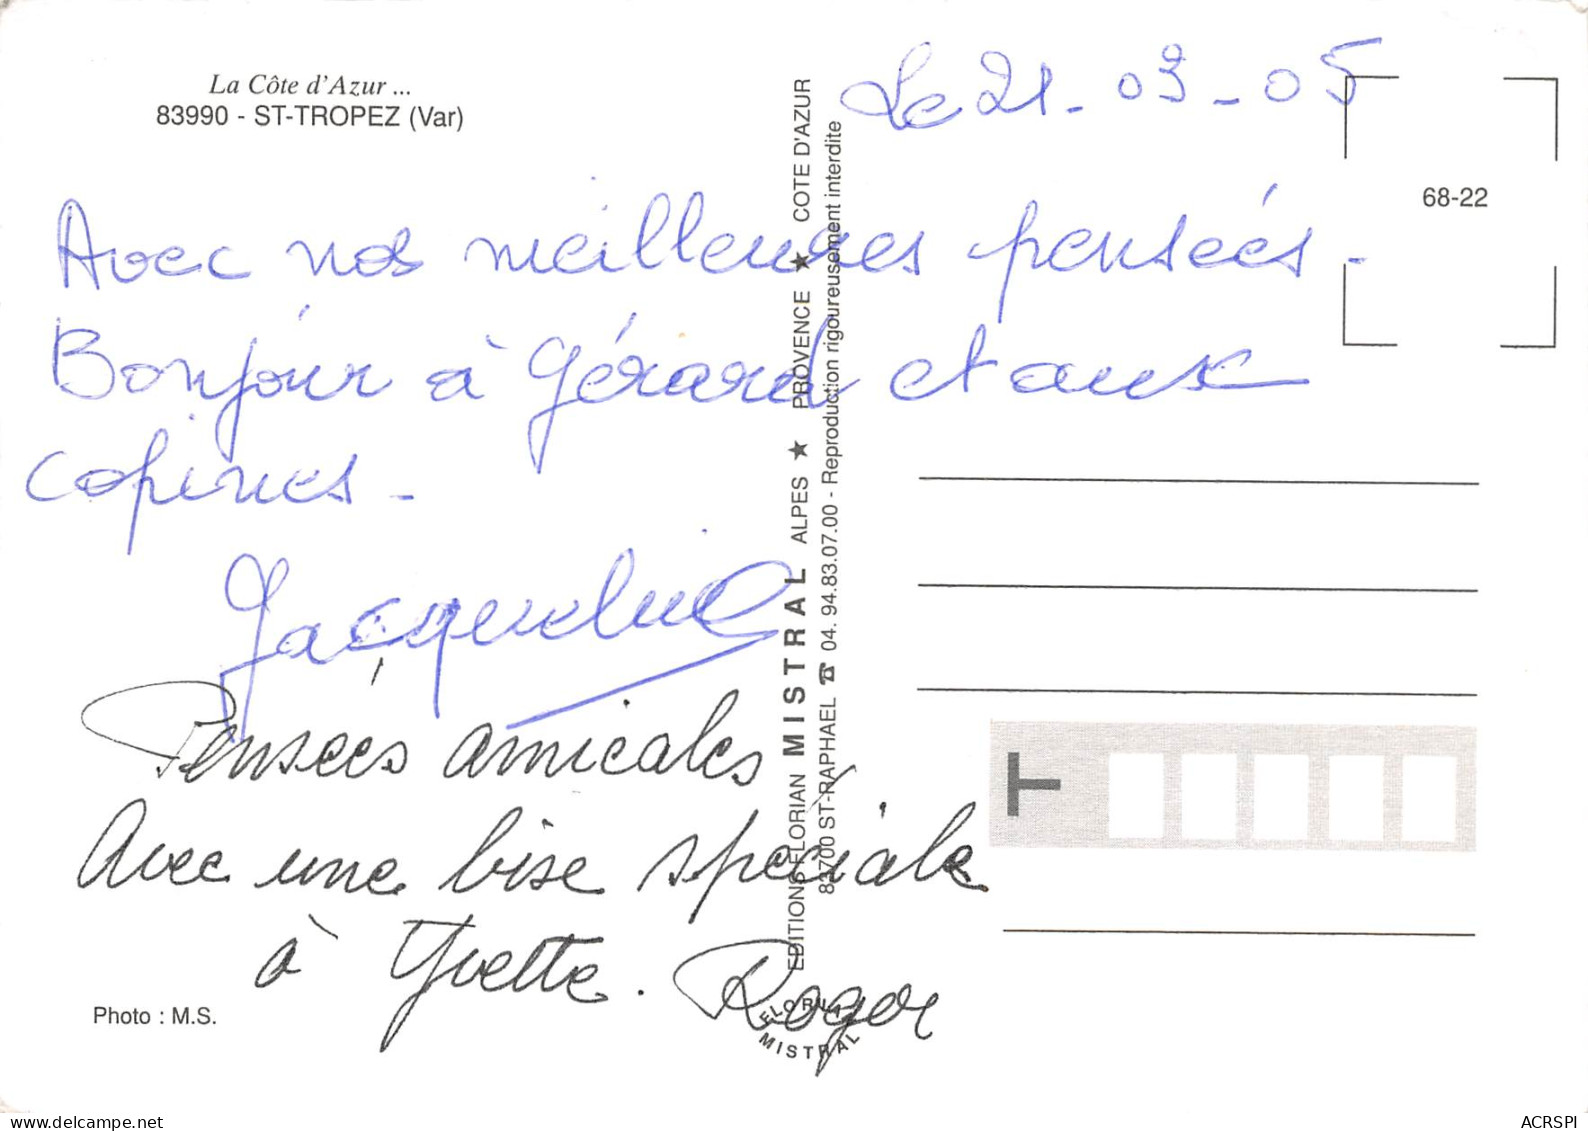 La Côte d'Azur ...
83990 - ST-TROPEZ (Var)
Le 21-03-05
68-22
Avec nos meilleures pensées.
Bonjour à Gérard et aux
copines.
Jacqueline
Pensées amicales
Avec une bise spéciale
à Yvette. Roger
Photo : M.S.
EDITIONS FLORIAN MISTRAL ALPES ★ PROVENCE ★ COTE D'AZUR
83700 ST-RAPHAEL ☎ 04. 94.83.07.00 - Reproduction rigoureusement interdite
FLORIAN
MISTRAL
T
www.delcampe.net
ACRSPI